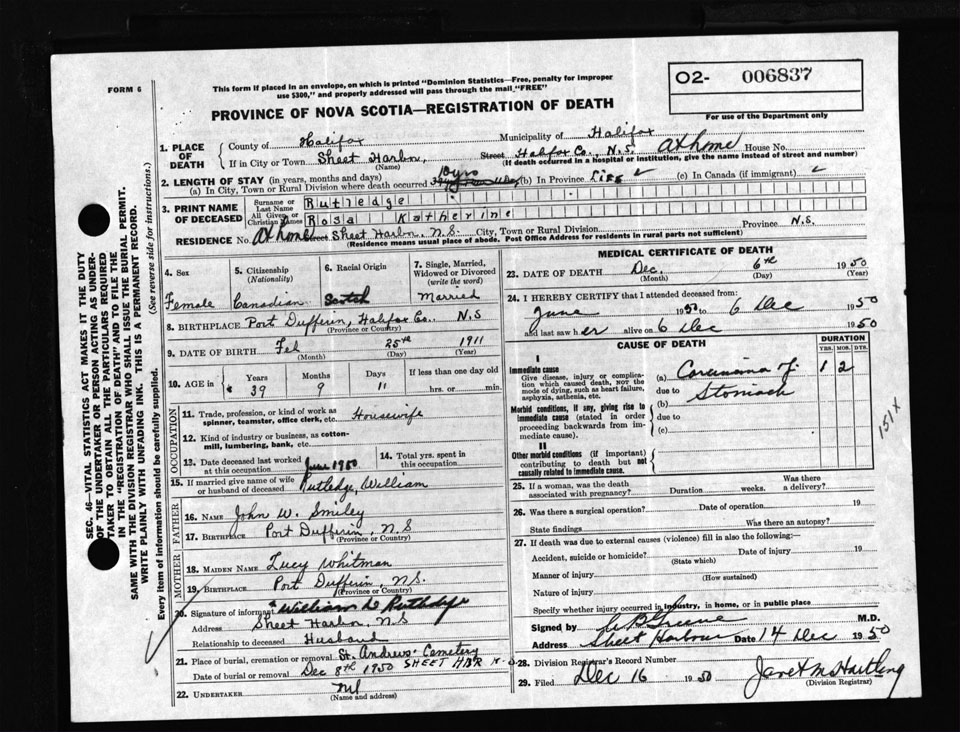 FORM 6
This form if placed in an envelope, on which is printed "Dominion Statistics—Free, penalty for improper
use $300," and properly addressed will pass through the mail "FREE"
O2- 006837
For use of the Department only
PROVINCE OF NOVA SCOTIA—REGISTRATION OF DEATH
SEC. 46—VITAL STATISTICS ACT MAKES IT THE DUTY
OF THE UNDERTAKER OR PERSON ACTING AS UNDER-
TAKER TO OBTAIN ALL THE PARTICULARS REQUIRED
IN THE "REGISTRATION OF DEATH" AND TO FILE THE
SAME WITH THE DIVISION REGISTRAR WHO SHALL ISSUE THE BURIAL PERMIT.
WRITE PLAINLY WITH UNFADING INK. THIS IS A PERMANENT RECORD.
Every item of information should be carefully supplied.
(See reverse side for instructions.)
1. PLACE OF DEATH
County of Halifax Municipality of Halifax
If in City or Town Sheet Harbor, Street Halifax Co., N.S. at home House No.
(Name) (If death occurred in a hospital or institution, give the name instead of street and number)
2. LENGTH OF STAY (in years, months and days)
(a) In City, Town or Rural Division where death occurred 10 yrs (b) In Province Life (c) In Canada (if immigrant)
3. PRINT NAME OF DECEASED
Surname or Last Name Rutledge
All Given or Christian Names Rosa Katherine
RESIDENCE No. At home Street Sheet Harbor, N.S. City, Town or Rural Division Province N.S.
(Residence means usual place of abode. Post Office Address for residents in rural parts not sufficient)
4. Sex Female
5. Citizenship (Nationality) Canadian
6. Racial Origin Scotch
7. Single, Married, Widowed or Divorced (write the word) Married
8. BIRTHPLACE Port Dufferin, Halifax Co., N.S
(Province or Country)
9. DATE OF BIRTH Feb 25th 1911
(Month) (Day) (Year)
10. AGE in Years 39 Months 9 Days 11 If less than one day old hrs. or min.
OCCUPATION
11. Trade, profession, or kind of work as spinner, teamster, office clerk, etc. Housewife
12. Kind of industry or business, as cotton-mill, lumbering, bank, etc.
13. Date deceased last worked at this occupation June 1950
14. Total yrs. spent in this occupation
15. If married give name of wife or husband of deceased Rutledge, William
FATHER
16. NAME John W. Smiley
17. BIRTHPLACE Port Dufferin, N.S
(Province or Country)
MOTHER
18. MAIDEN NAME Lucy Whitman
19. BIRTHPLACE Port Dufferin, N.S.
(Province or Country)
20. Signature of informant William D Rutledge
Address Sheet Harbor, N.S
Relationship to deceased Husband
21. Place of burial, cremation or removal St. Andrews' Cemetery
Date of burial or removal Dec 8th 1950 SHEET HBR N-S
22. UNDERTAKER nil
(Name and address)
MEDICAL CERTIFICATE OF DEATH
23. DATE OF DEATH Dec. 6th 1950
(Month) (Day) (Year)
24. I HEREBY CERTIFY that I attended deceased from:
June 1950 to 6 Dec 1950
and last saw her alive on 6 Dec 1950
CAUSE OF DEATH
DURATION
YRS. MOS. DYS.
I
Immediate cause
Give disease, injury or complication which caused death, NOT the mode of dying, such as heart failure, asphyxia, asthenia, etc.
(a) Carcinoma of 1 2
due to Stomach
Morbid conditions, if any, giving rise to immediate cause (stated in order proceeding backwards from immediate cause).
(b)
due to
(c)
II
Other morbid conditions (if important) contributing to death but not causally related to immediate cause.
151X
25. If a woman, was the death associated with pregnancy? Duration weeks. Was there a delivery?
26. Was there a surgical operation? Date of operation 19
State findings Was there an autopsy?
27. If death was due to external causes (violence) fill in also the following:—
Accident, suicide or homicide? Date of injury 19
(State which)
Manner of injury
(How sustained)
Nature of injury
Specify whether injury occurred in industry, in home, or in public place
Signed by C B Greene M.D.
Address Sheet Harbour Date 14 Dec 1950
28. Division Registrar's Record Number
29. Filed Dec 16 1950 Janet M Hartling
(Division Registrar)